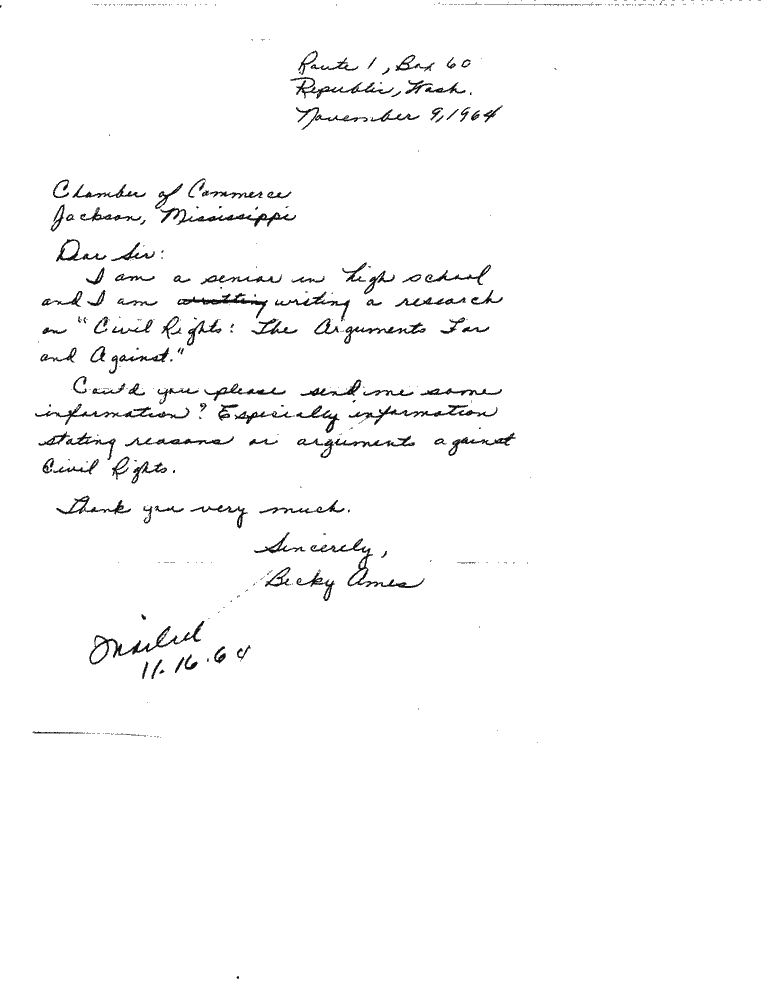 Route 1, Box 60
Republic, Wash.
November 9, 1964
Chamber of Commerce
Jackson, Mississippi
Dear Sir:
I am a senior in high school
and I am writting writing a research
on "Civil Rights: The Arguments For
and Against."
Could you please send me some
information? Especially information
stating reasons or arguments against
Civil Rights.
Thank you very much.
Sincerely,
Becky Ames
Mailed
11.16.64